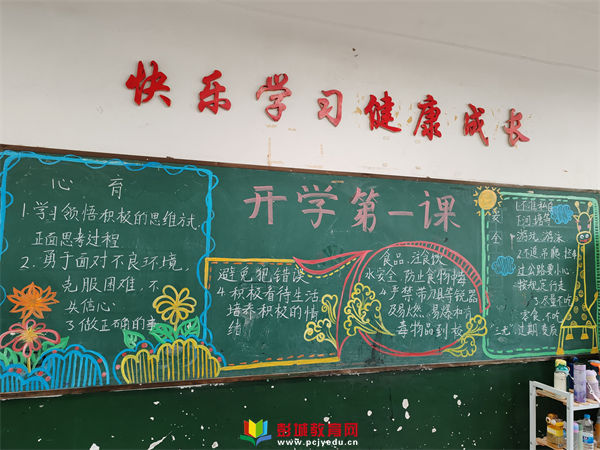 快乐学习健康成长
开学第一课
心育
1.学习领悟积极的思维方式
正面思考过程
2.勇于面对不良环境,
克服困难,不
失信心
3.做正确的事
避免犯错误
4.积极看待生活
培养积极的情
绪
食品、注食饮
水安全,防止食物中毒
4.严禁带刀具等锐器
及易燃、易爆和有
毒物品到校
安
全
1.不准私自
下河塘等
游泳
2.不准吊爬栏杆
过公路要小心
按规定行走
3.尽量不吃
零食,不吃
"三无"过期变质
彭城教育网
www.pcjyedu.cn